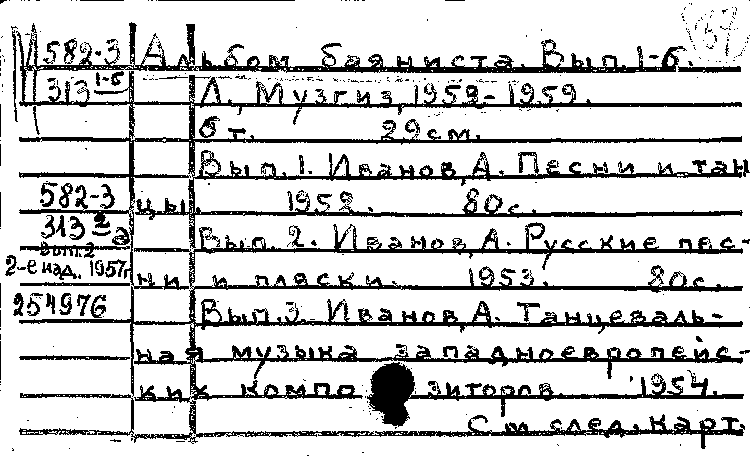 37
М 582-3 Альбом баяниста. Вып. 1-6.
313 1-6 Л., Музгиз, 1952-1959.
6 т. 29 см.
Вып. 1. Иванов, А. Песни и тан
582-3 цы. 1952. 80 с.
313 2 а Вып. 2. Иванов, А. Русские пес-
вып. 2
2-е изд., 1957г. ни и пляски. 1953. 80 с.
254976 Вып. 3. Иванов, А. Танцеваль-
ная музыка западноевропейс-
ких компо зиторов. 1954.
См след. карт.